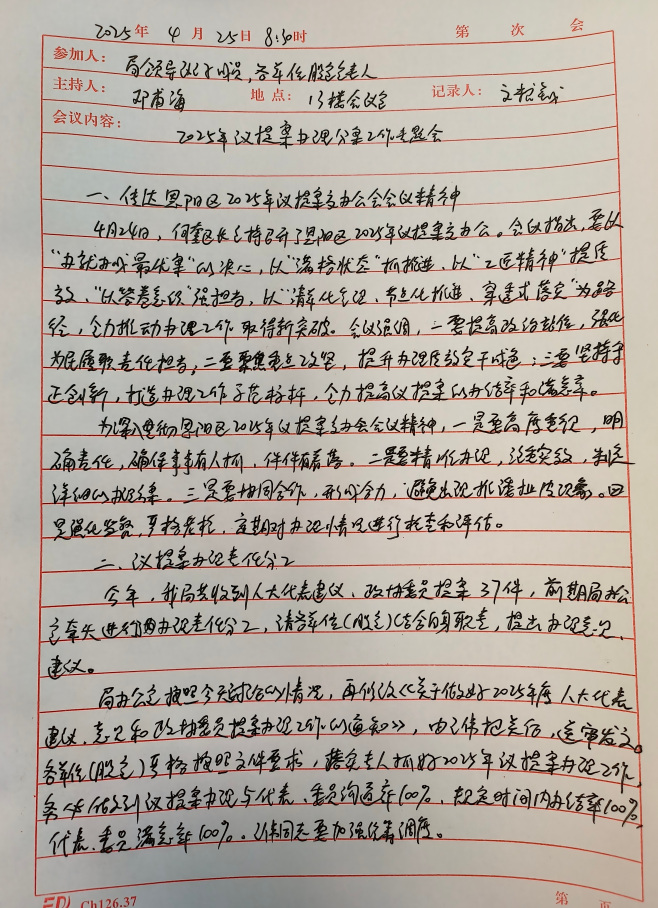 2025年 4月 25日 8:30时 第 次 会
参加人: 局领导班子成员,各单位股室负责人
主持人: 邓甫海 地点: 13楼会议室 记录人:
会议内容:
2025年议提案办理分案工作专题会
一、传达恩阳区2025年议提案交办会会议精神
4月24日,何奎区长主持召开了恩阳区2025年议提案交办会。会议指出,要以
“办就办成最优案”的决心,以“满格状态”抓推进、以“工匠精神”提质
效、“以答卷意识”强担当,以“清单化管理、节点化推进、穿透式落实”为路
径,全力推动办理工作取得新突破。会议强调,一要提高政治站位,强化
为民履职责任担当;二要聚焦重点攻坚,提升办理质效实干成色;三要坚持守
正创新,打造办理工作示范标杆,全力提高议提案的办结率和满意率。
为深入贯彻恩阳区2025年议提案交办会会议精神,一是要高度重视,明
确责任,确保事事有人抓,件件有着落。二是要精准办理,注重实效,制定
详细的办理方案。三是要协同合作,形成合力,避免出现推诿扯皮现象。四
是强化监督,严格考核,定期对办理情况进行检查和评估。
二、议提案办理责任分工
今年,我局共收到人大代表建议、政协委员提案37件,前期局办公
室牵头进行了办理责任分工,请各单位(股室)结合自身职责,提出办理意见、
建议。
局办公室按照今天讨论的情况,再修改《关于做好2025年度人大代表
建议、意见和政协委员提案办理工作的通知》,由 把关后,送审发文。
各单位(股室)严格按照文件要求,落实专人抓好2025年议提案办理工作,
务必做到议提案办理与代表、委员沟通率100%、规定时间内办结率100%,
代表、委员满意率100%。 同志要加强统筹调度。
Ch126.37 第 页